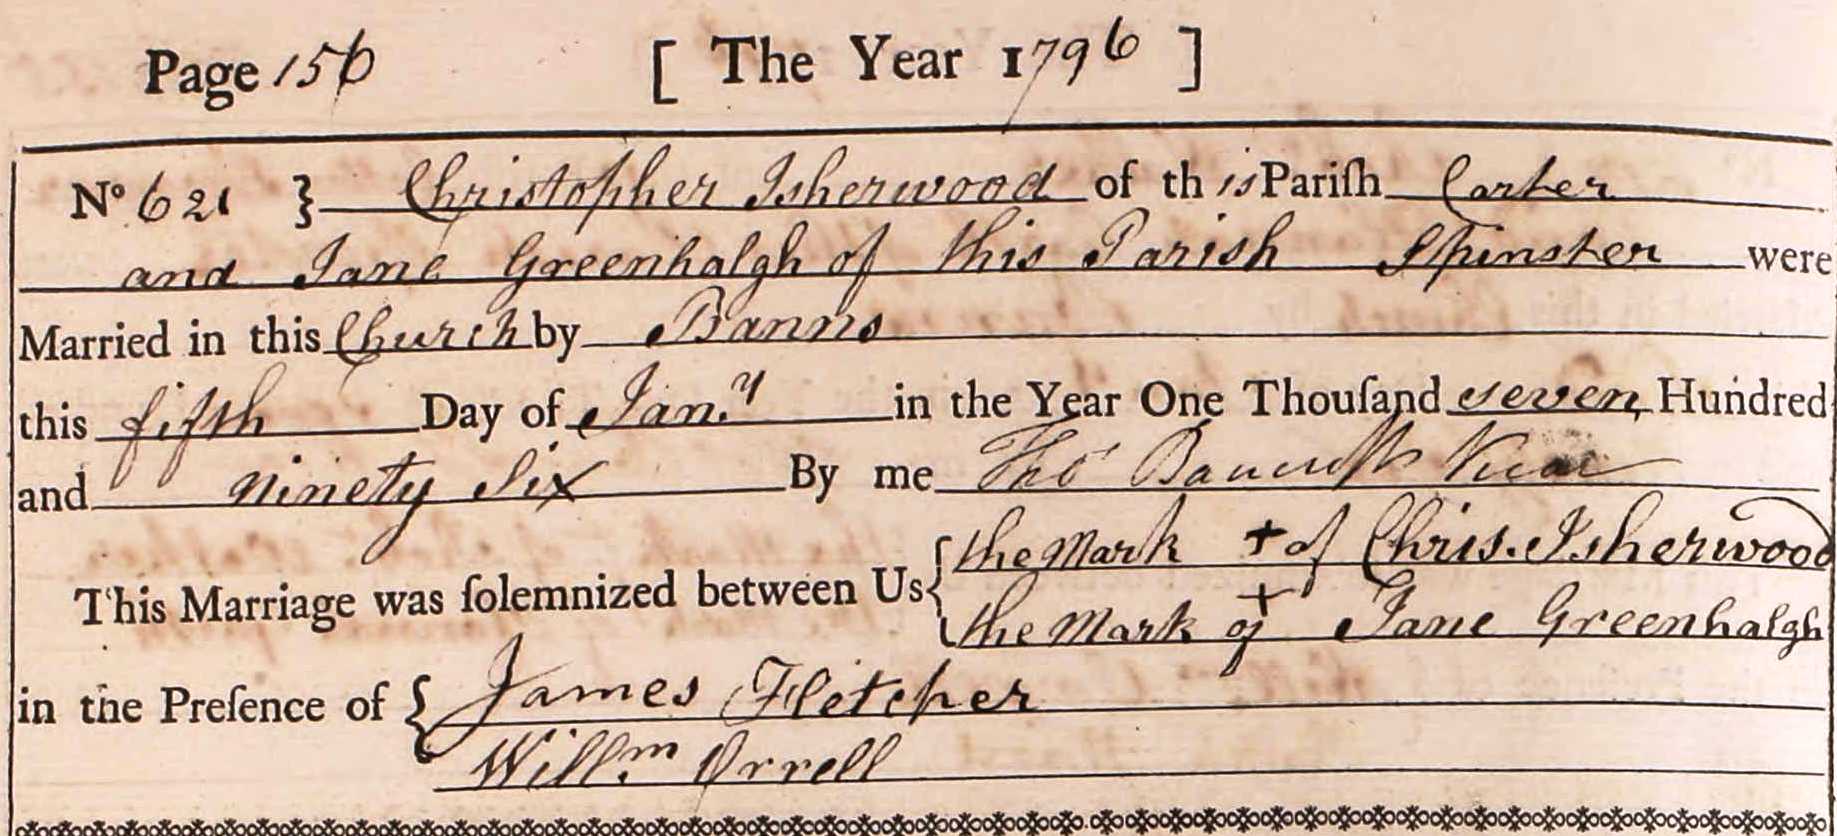 Page 156 [ The Year 1796 ]
No 621 } Christopher Isherwood of this Pariſh Carter
and Jane Greenhalgh of this Parish Spinster were
Married in this Church by Banns
this fifth Day of Jan.y in the Year One Thouſand seven Hundred
and ninety Six By me Thos Bancroft Vicar
This Marriage was ſolemnized between Us { the Mark + of Chris. Isherwood
the Mark + of Jane Greenhalgh
in the Preſence of { James Fletcher
Willm Orrell